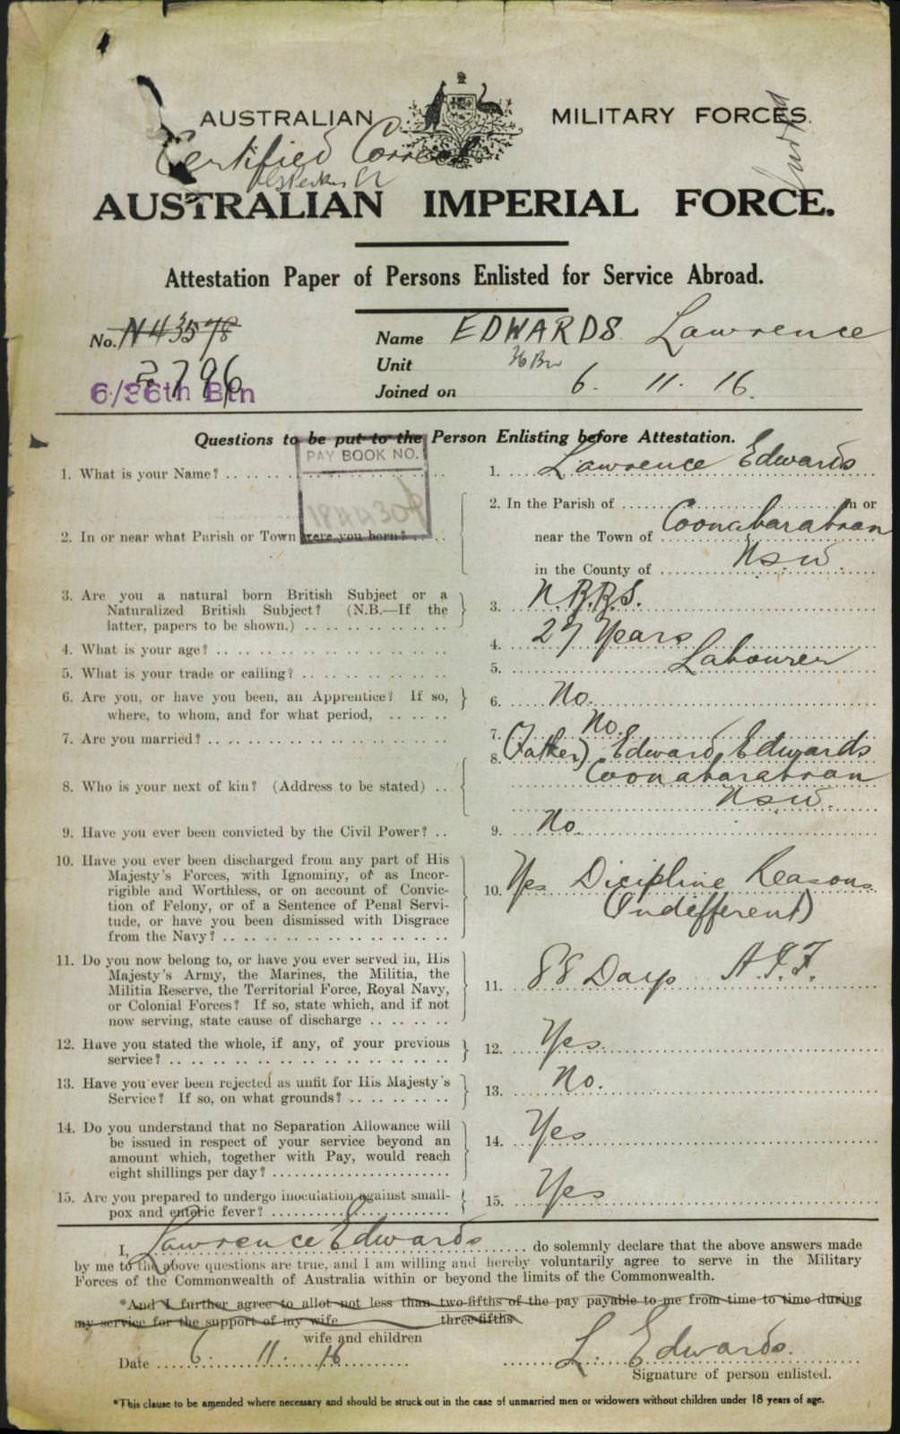 AUSTRALIAN MILITARY FORCES.
Certified Correct
AUSTRALIAN IMPERIAL FORCE.
Attestation Paper of Persons Enlisted for Service Abroad.
No. N43578
3796
6/36th Btn
Name EDWARDS Lawrence
Unit
Joined on 6. 11. 16.
Questions to be put to the Person Enlisting before Attestation.
PAY BOOK NO.
1. What is your Name? 1. Lawrence Edwards
2. In or near what Parish or Town were you born? 2. In the Parish of in or
near the Town of Coonabarabran
in the County of NSW.
3. Are you a natural born British Subject or a
Naturalized British Subject? (N.B.—If the
latter, papers to be shown.) 3. N.B.B.S.
4. What is your age? 4. 27 Years
5. What is your trade or calling? 5. Labourer
6. Are you, or have you been, an Apprentice? If so,
where, to whom, and for what period, 6. No.
7. Are you married? 7. No.
8. Who is your next of kin? (Address to be stated) 8. (Father) Edward Edwards
Coonabarabran
NSW.
9. Have you ever been convicted by the Civil Power? 9. No
10. Have you ever been discharged from any part of His
Majesty's Forces, with Ignominy, or as Incor-
rigible and Worthless, or on account of Convic-
tion of Felony, or of a Sentence of Penal Servi-
tude, or have you been dismissed with Disgrace
from the Navy? 10. Yes Dicipline Reasons
(Indifferent)
11. Do you now belong to, or have you ever served in, His
Majesty's Army, the Marines, the Militia, the
Militia Reserve, the Territorial Force, Royal Navy,
or Colonial Forces? If so, state which, and if not
now serving, state cause of discharge 11. 88 Days A.I.F.
12. Have you stated the whole, if any, of your previous
service? 12. Yes.
13. Have you ever been rejected as unfit for His Majesty's
Service? If so, on what grounds? 13. No.
14. Do you understand that no Separation Allowance will
be issued in respect of your service beyond an
amount which, together with Pay, would reach
eight shillings per day? 14. Yes
15. Are you prepared to undergo inoculation against small-
pox and enteric fever? 15. Yes
I, Lawrence Edwards do solemnly declare that the above answers made
by me to the above questions are true, and I am willing and hereby voluntarily agree to serve in the Military
Forces of the Commonwealth of Australia within or beyond the limits of the Commonwealth.
*And I further agree to allot not less than two-fifths of the pay payable to me from time to time during
my service for the support of my wife three-fifths
wife and children
Date 6. 11. 16 L. Edwards.
Signature of person enlisted.
*This clause to be amended where necessary and should be struck out in the case of unmarried men or widowers without children under 18 years of age.